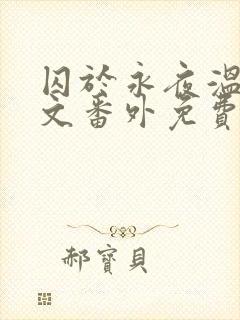 囚於永夜溫
文番外免費
郝寶貝